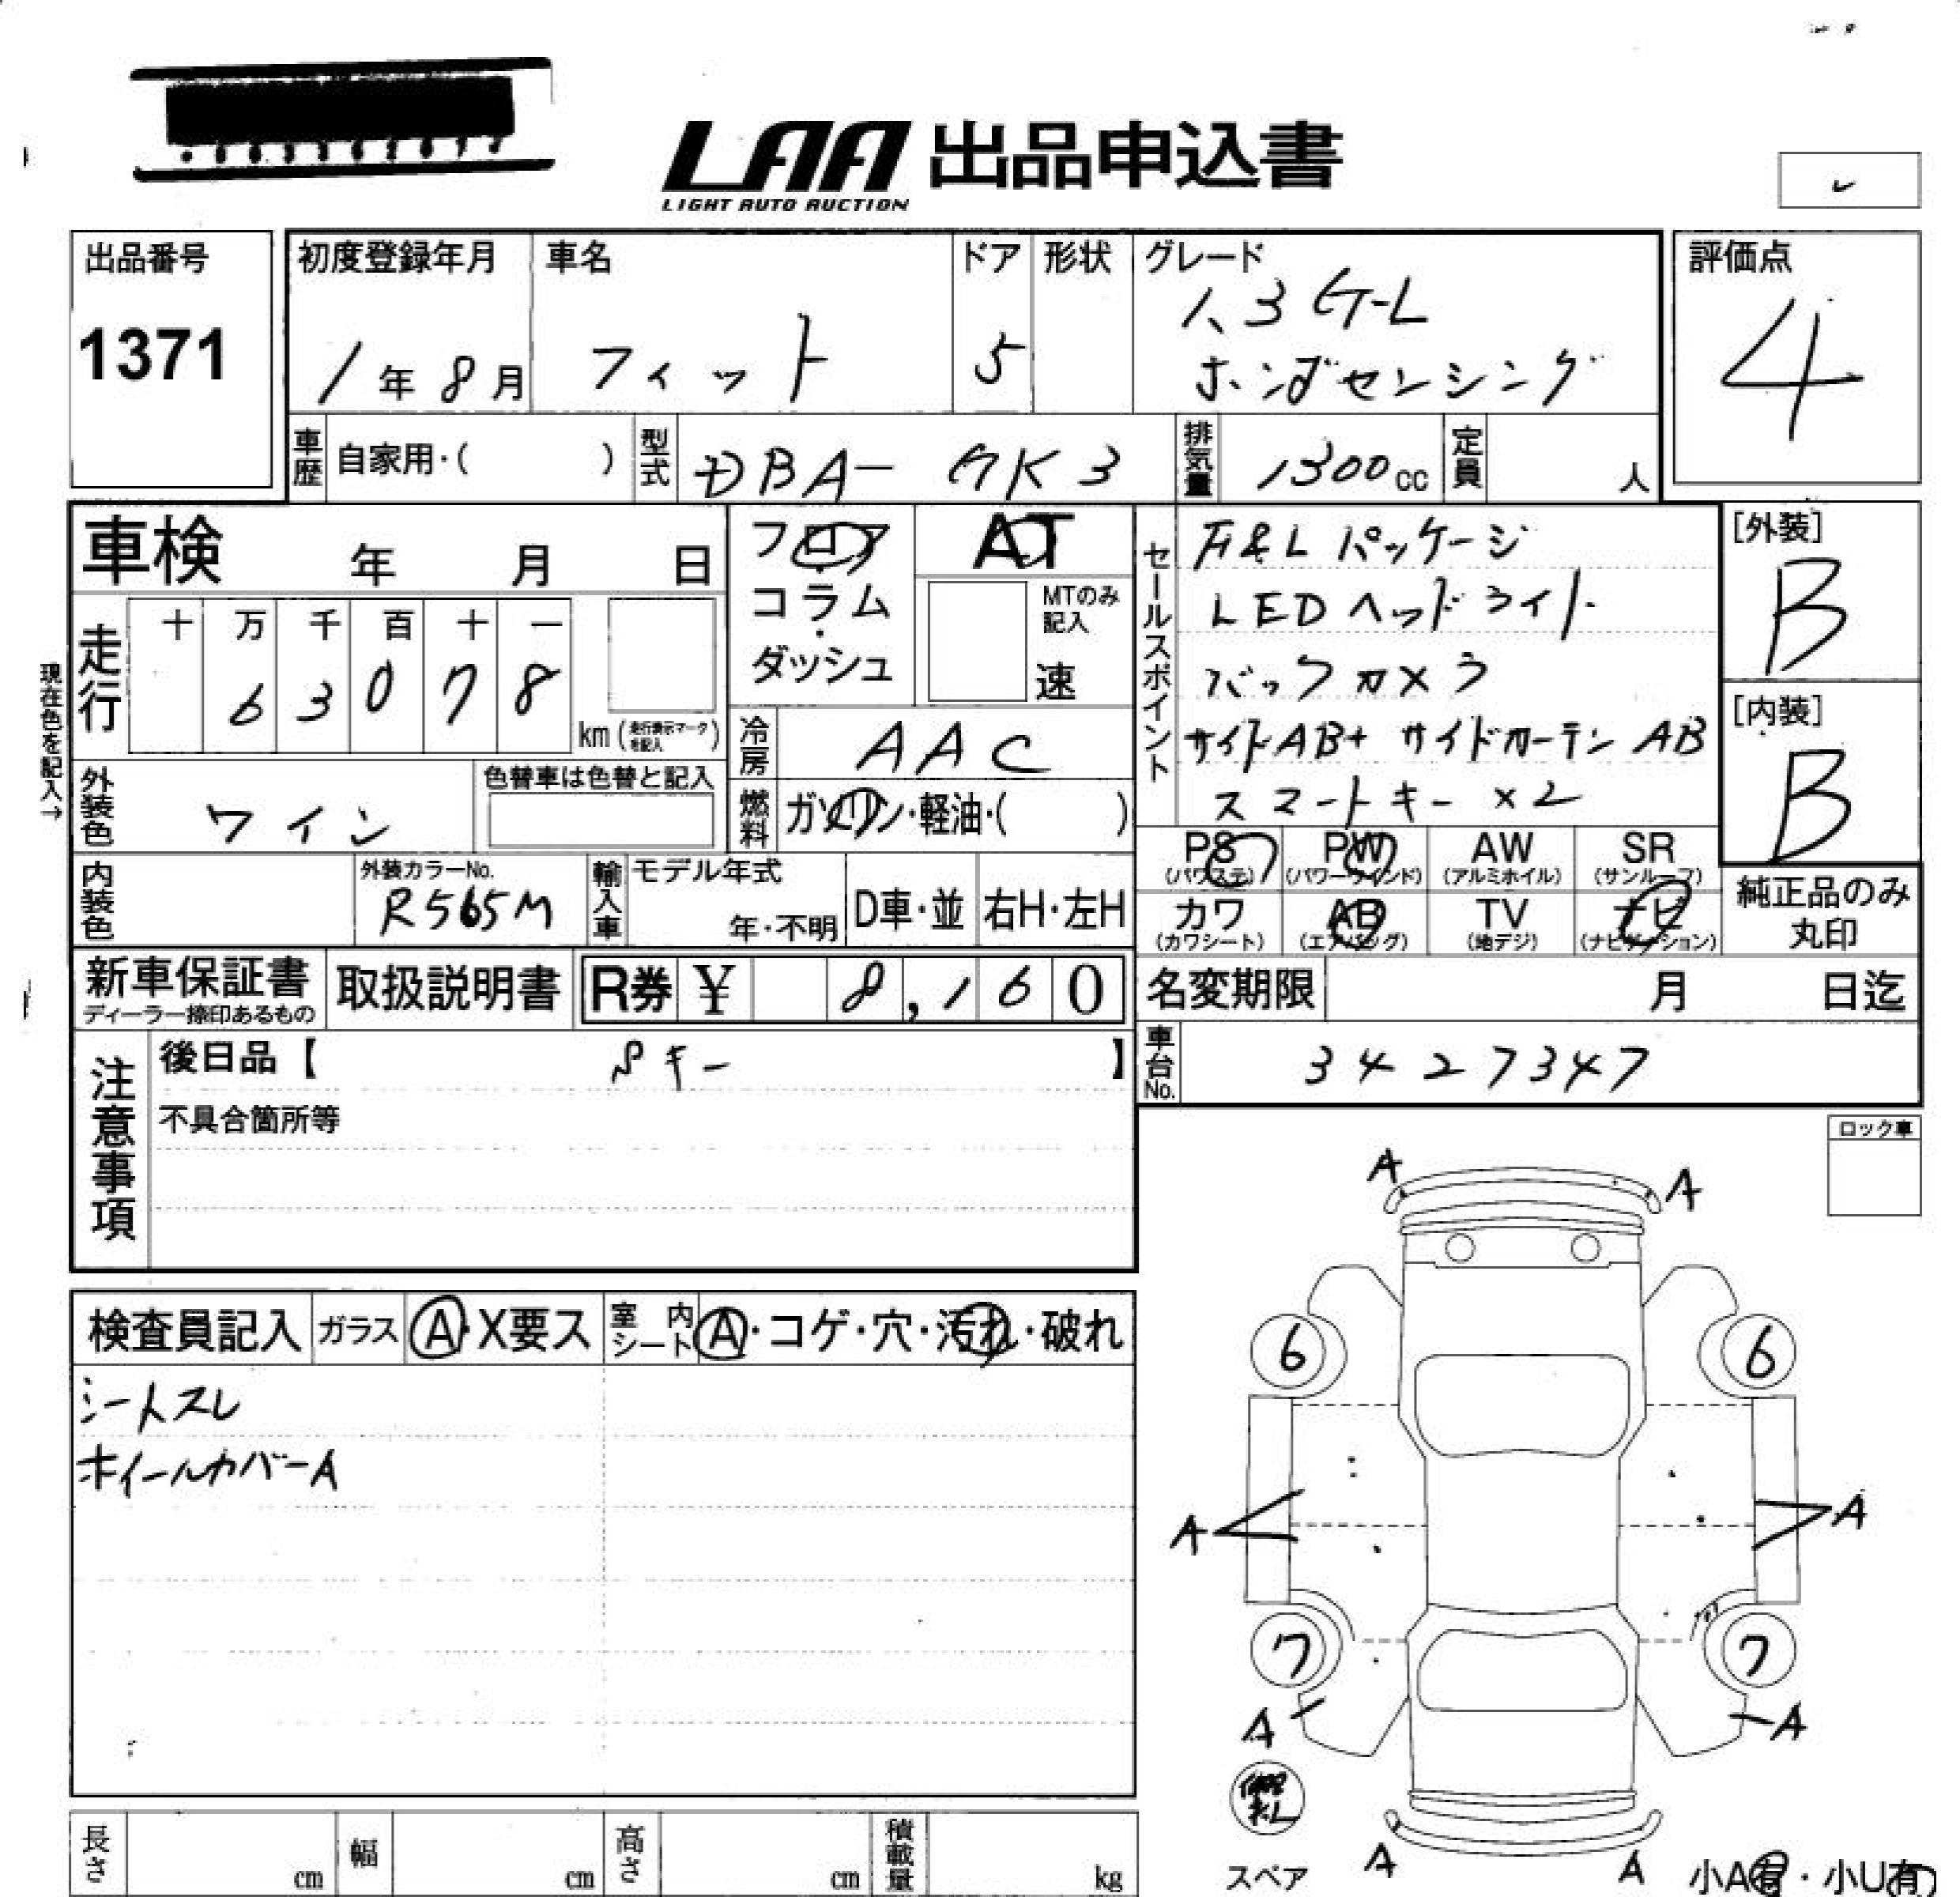 LAA 出品申込書
LIGHT AUTO AUCTION
出品番号
1371
初度登録年月
1年8月
車名
フィット
ドア
5
形状
グレード
1.3 G-L
ホンダセンシング
評価点
4
車歴 自家用・( )
型式 DBA-GK3
排気量 1300cc
定員 人
車検 年 月 日
フロア・コラム・ダッシュ
AT
MTのみ記入
速
セールスポイント
F&Lパッケージ
LEDヘッドライト
バックカメラ
サイドAB+サイドカーテンAB
スマートキー×2
[外装]
B
[内装]
B
現在色を記入→
走行
十 万 千 百 十 一
6 3 0 7 8
km (走行表示マークを記入)
冷房 AAC
外装色 ワイン
色替車は色替と記入
燃料 ガソリン・軽油・( )
PS (パワステ)
PW (パワーウィンド)
AW (アルミホイル)
SR (サンルーフ)
カワ (カワシート)
AB (エアバッグ)
TV (地デジ)
ナビ (ナビゲーション)
純正品のみ丸印
内装色
外装カラーNo.
R565M
輸入車
モデル年式
年・不明
D車・並
右H・左H
新車保証書
ディーラー捺印あるもの
取扱説明書
R券 ¥ 8,160
名変期限 月 日迄
車台No. 3427347
注意事項
後日品【 Sキー 】
不具合箇所等
ロック車
A A
6 6
A A
7 7
A A
スペア
A A
小A有・小U有
検査員記入
ガラス A・X要ス
室内シート A・コゲ・穴・汚れ・破れ
シートスレ
ホイールカバーA
長さ cm
幅 cm
高さ cm
積載量 kg